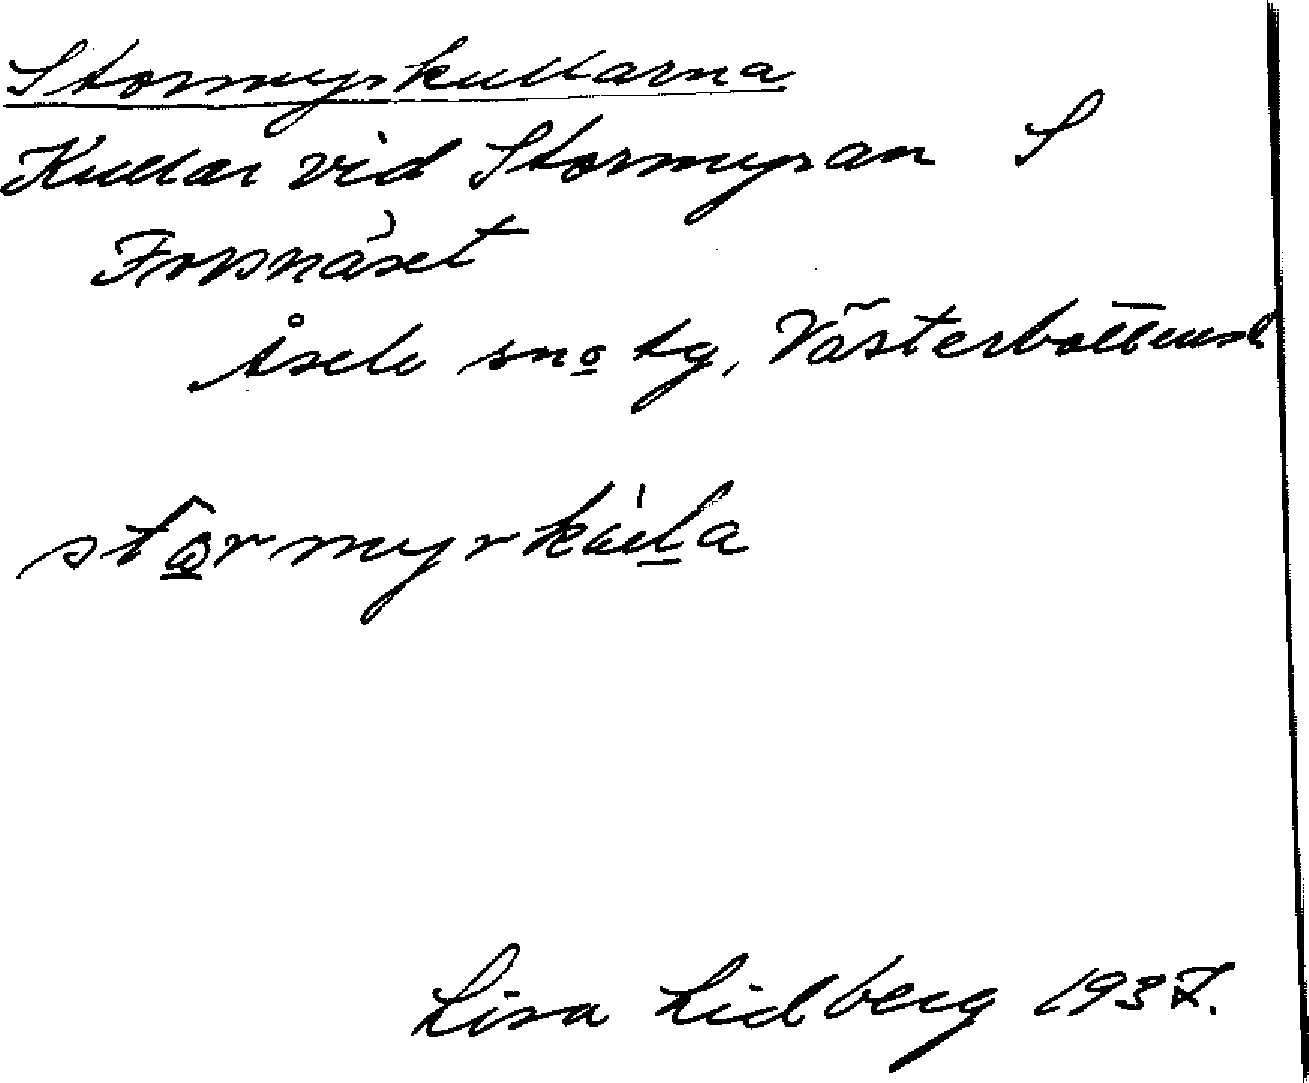 Stormyrkullarna
Kullar vid Stormyran S
Forsnäset
Åsele sn o tg, Västerbottens l
Lisa Lidberg 1937.